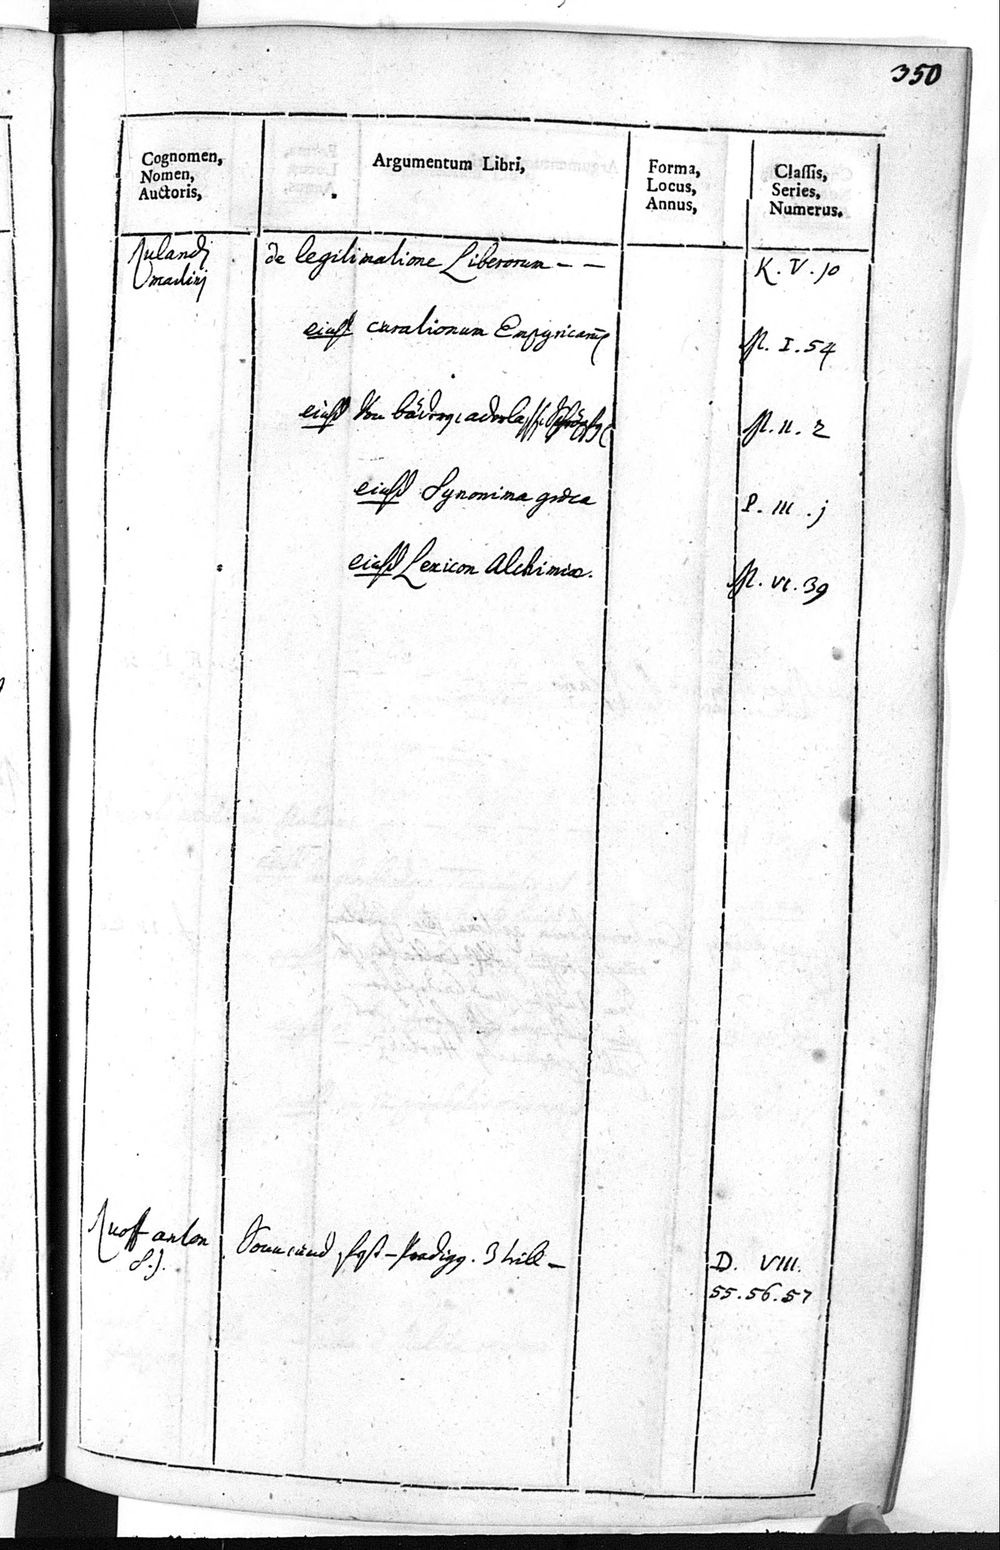 350
Cognomen,
Nomen,
Auctoris,
Argumentum Libri,
Forma,
Locus,
Annus,
Classis,
Series,
Numerus.
Rulandj
Martinj
de legitimatione Liberorum – –
K. V. 10
eiusd curationum Empyricarū
N. I. 54
eiusd Von bäderη, aderlassη,
N. II. 2
eiusd Synonima græca
P. III. j
eiusd Lexicon Alchimiæ.
N. VI. 39
Ruoff anton
S. J.
Sonn und fest – Predigη. 3 theil –
D. VIII.
55. 56. 57